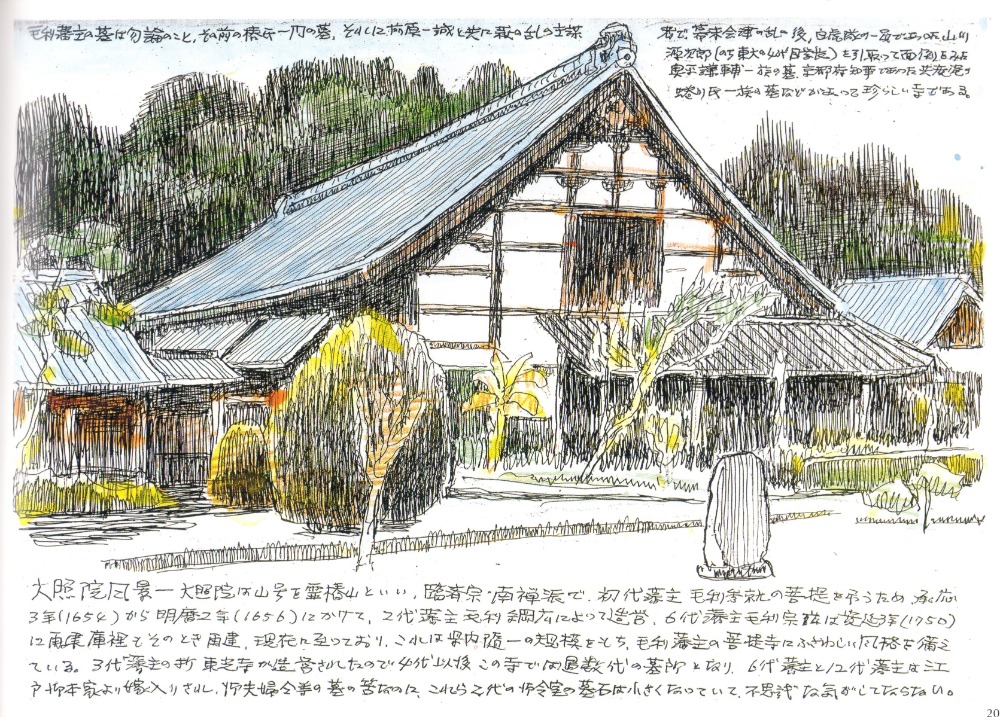 毛利藩主の墓は勿論のこと、その前の椿氏一門の墓、それに前原一誠と共に萩の乱の主謀
者で幕末会津の乱の後、白虎隊の一員であった山川
源次郎(のち東大の4代目学長)を引取って面倒をみた
奥平謙輔一族の墓、京都府知事であった
一族の墓などがあって珍らしい寺である。
大照院風景ー大照院は山号を霊椿山といい、臨済宗・南禅派で、初代藩主毛利秀就の菩提を弔うため、承応
3年(1654)から明暦2年(1656)にかけて、2代藩主毛利綱広によって造営、6代藩主毛利宗広は延享(1750)
に再建庫裡もそのとき再建、現在に至っており、これは県内随一の規模をもち、毛利藩主の菩提寺にふさわしい風格を備え
ている。3代藩主の折東光寺が造営されたので4代以後この寺では偶数代の墓所となり、6代藩主と12代藩主は江
戸御本家より嫁入りされ、御夫婦合葬の墓の筈なのに、これら2代の御令室の墓石は小さくなっていて、不思議な気がしてならない。
20